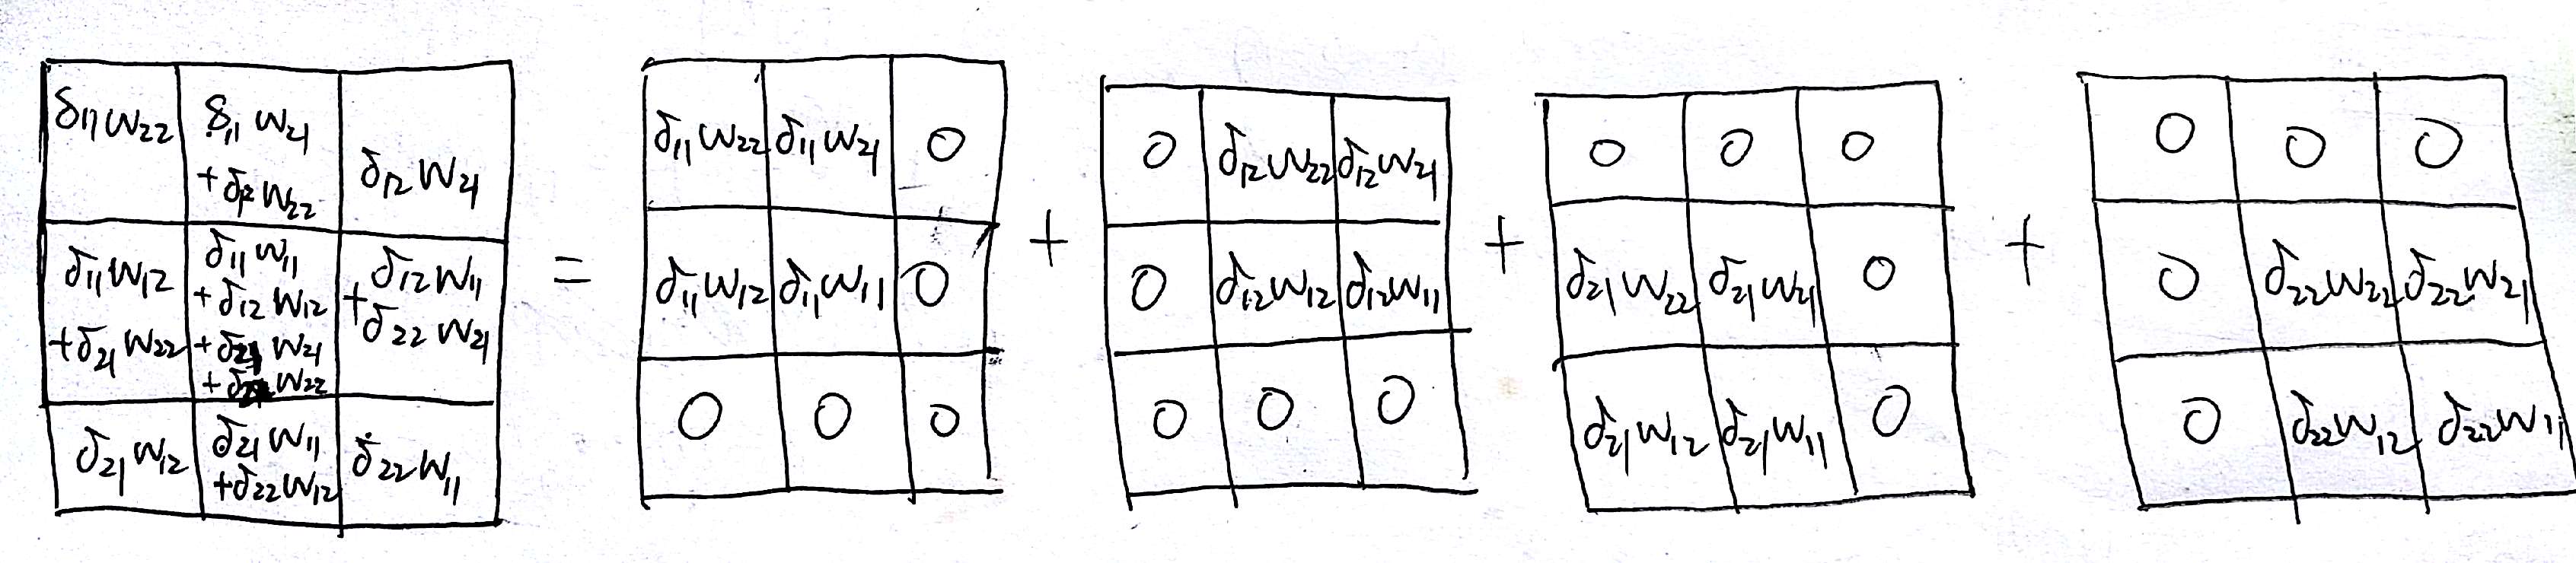 δ11w22 | δ11w21 +δ12w22 | δ12w21
δ11w12 +δ21w22 | δ11w11 +δ12w12 +δ21w21 +δ22w22 | δ12w11 +δ22w21
δ21w12 | δ21w11 +δ22w12 | δ22w11
=
δ11w22 | δ11w21 | 0
δ11w12 | δ11w11 | 0
0 | 0 | 0
+
0 | δ12w22 | δ12w21
0 | δ12w12 | δ12w11
0 | 0 | 0
+
0 | 0 | 0
δ21w22 | δ21w21 | 0
δ21w12 | δ21w11 | 0
+
0 | 0 | 0
0 | δ22w22 | δ22w21
0 | δ22w12 | δ22w11